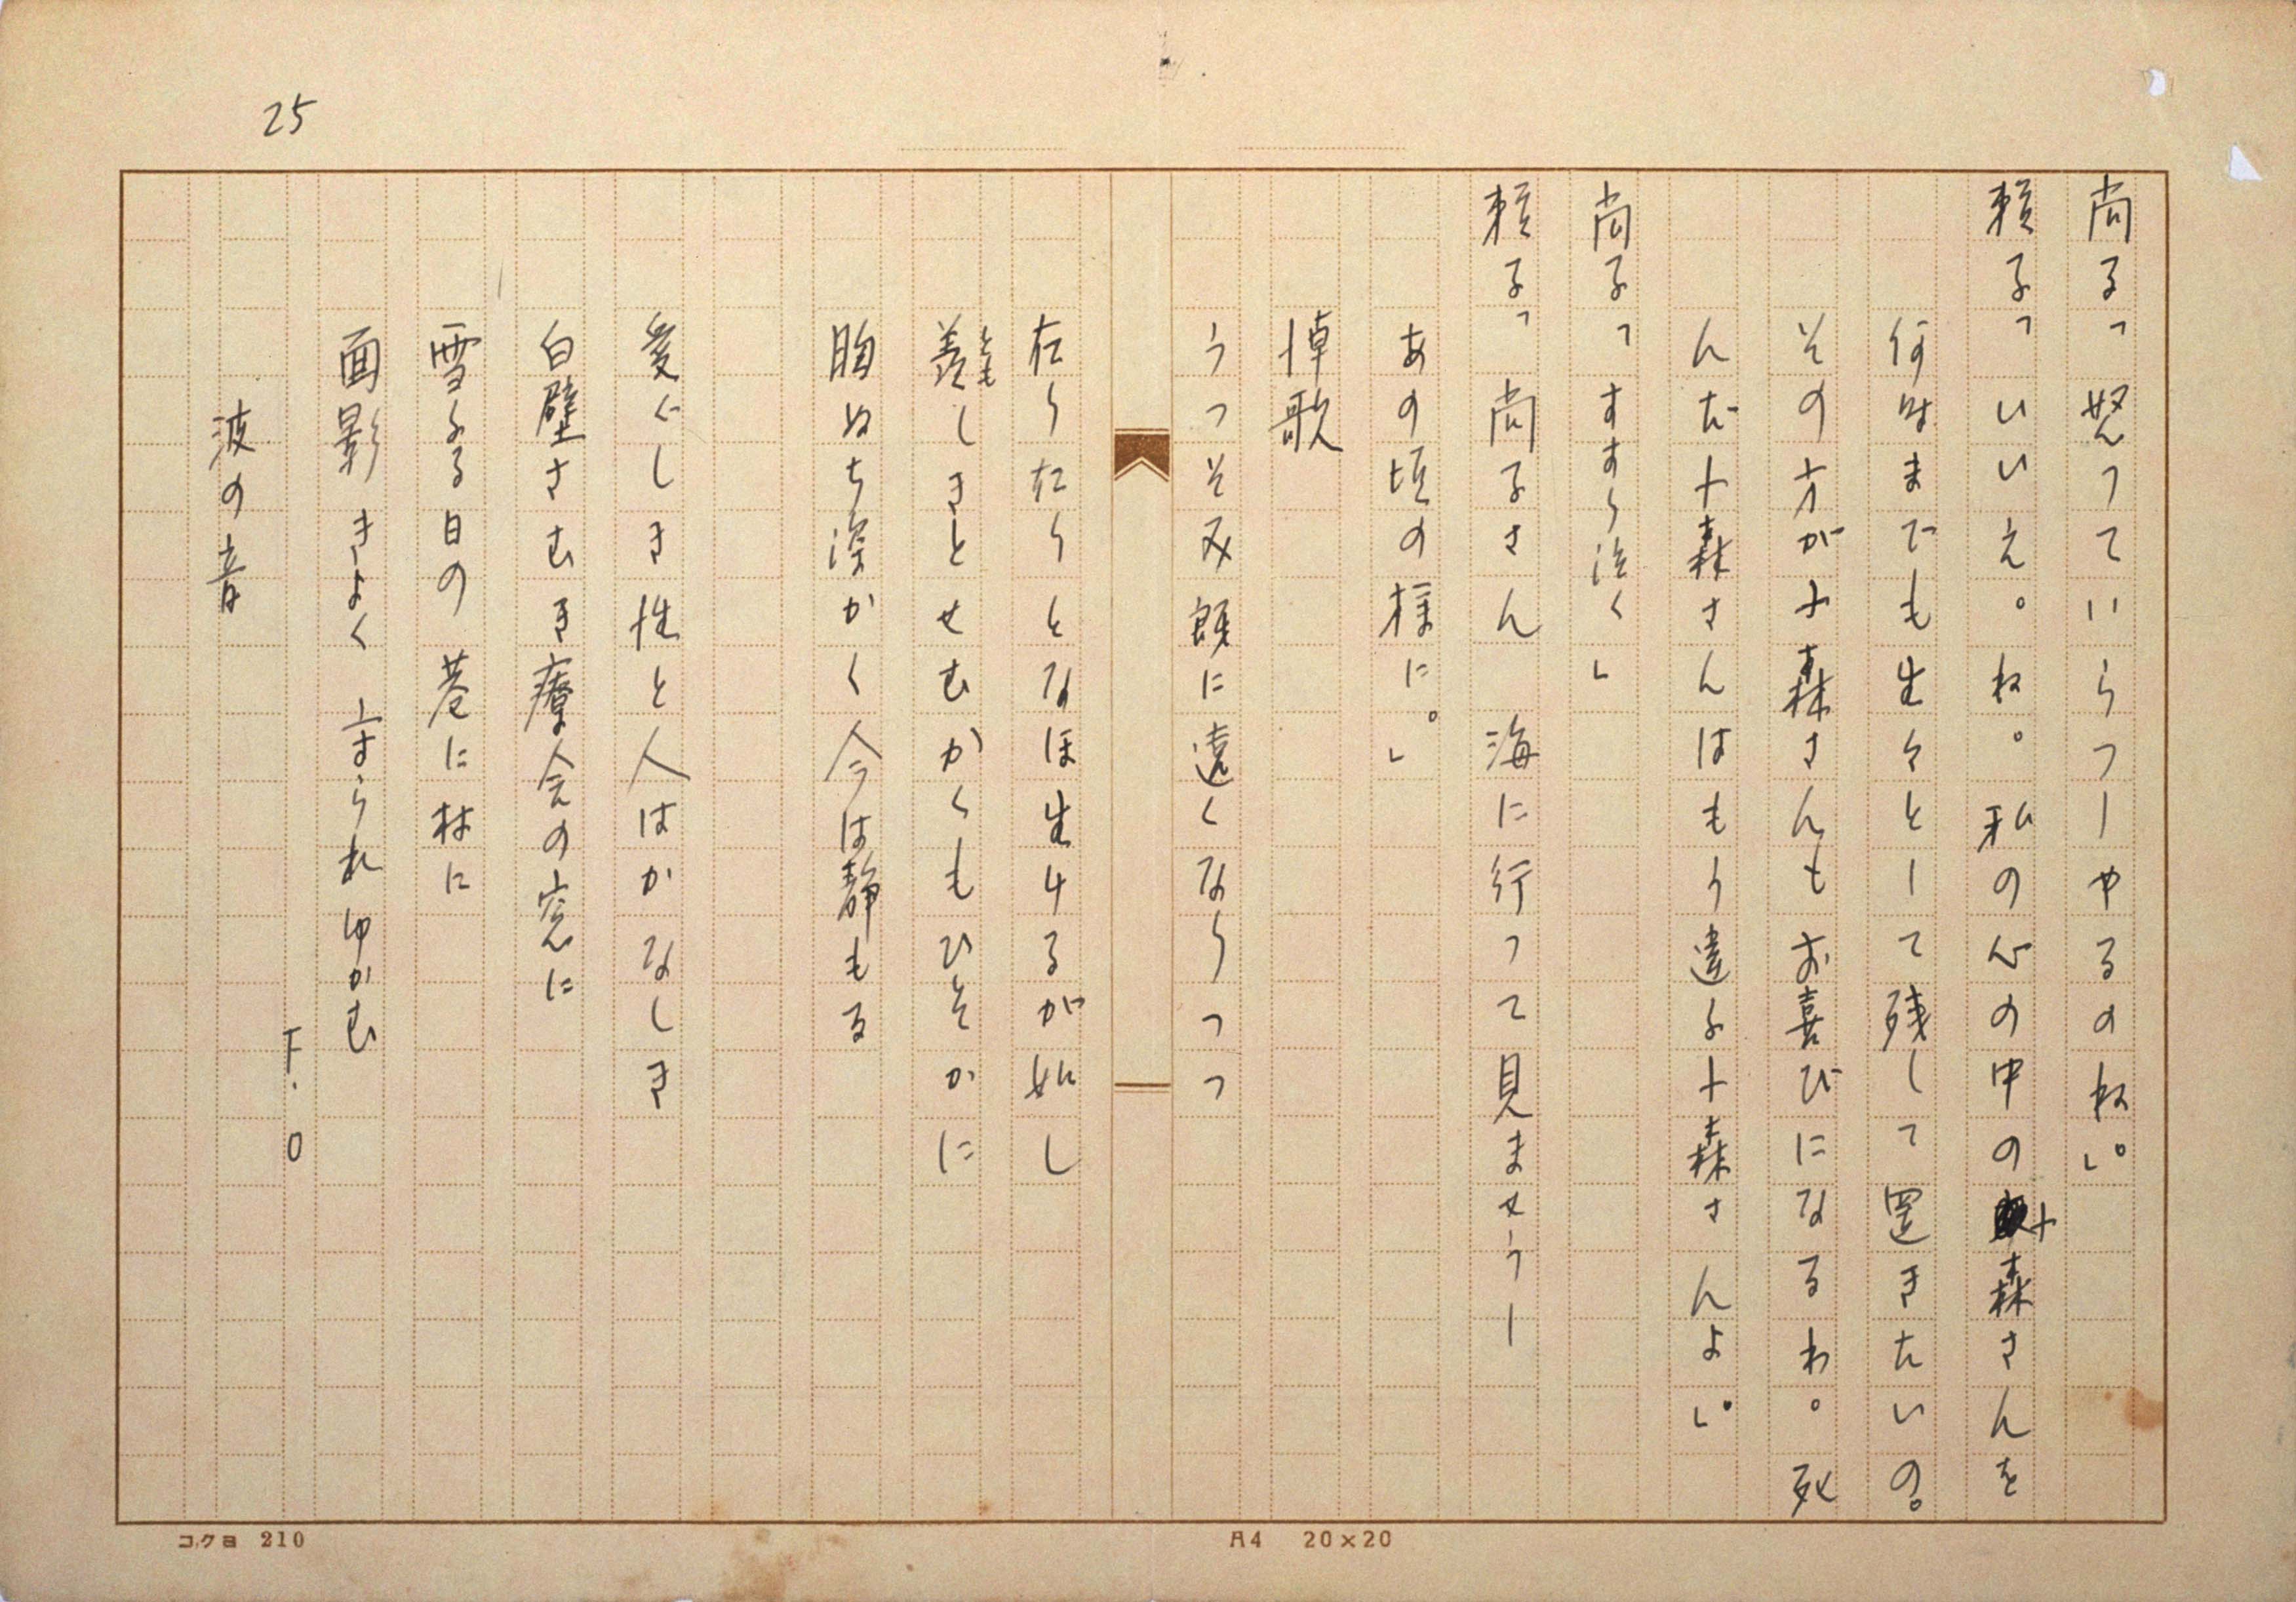 25
尚子「怒っていらっしゃるのね。」
頼子「いいえ。ね。私の心の中の小森さんを
何時までも生々として残して置きたいの。
その方が小森さんもお喜びになるわ。死
んだ小森さんはもう違ふ小森さんよ。」
尚子「すすり泣く」
頼子「尚子さん 海に行って見ませう―
あの頃の様に。」
悼歌
うつそみ既に遠くなりつつ
在りたりとなほ生けるが如し
羨しきとせむかくもひそかに
とも
胸ぬち深かく今は静もる
愛ぐしき性と人はかなしき
白壁さむき療舍の窓に
雪ふる日の巷に林に
面影きよく守られゆかむ
F.O
波の音
コクヨ 210
A4 20×20